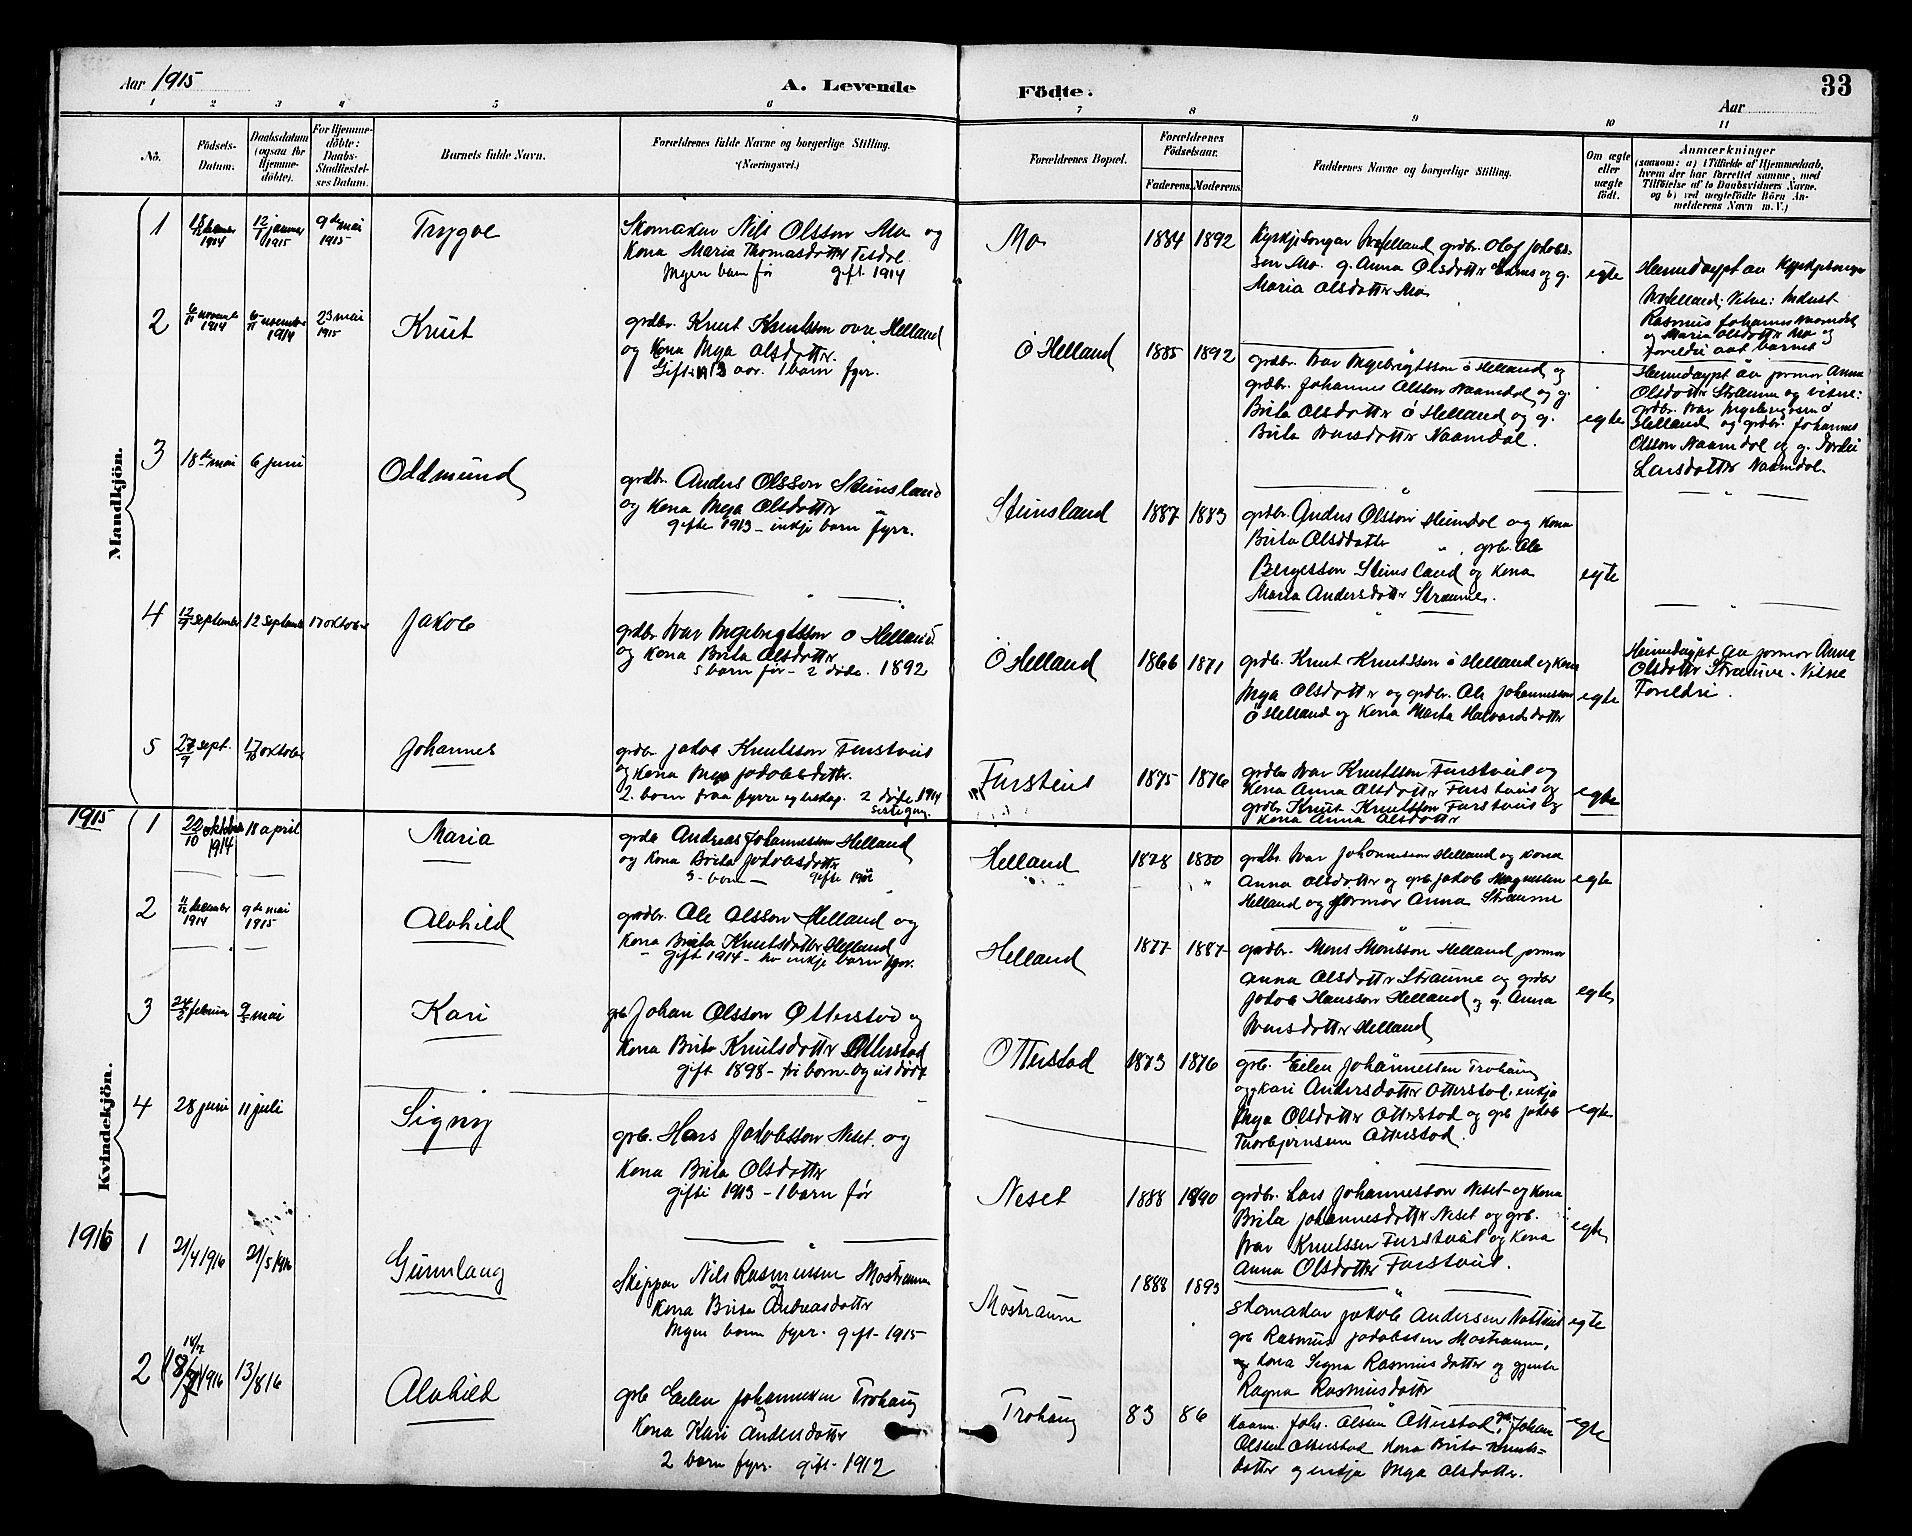 Aar 1915
A. Levende Födte.
Aar
33
1 2 3 4 5 6 7 8 9 10 11
No.
Födsels-Datum.
Daabsdatum (ogsaa for Hjemme-döbte).
For Hjemme-döbte: Daabs-Stadfæstel-ses Datum.
Barnets fulde Navn.
Forældrenes fulde Navne og borgerlige Stilling. (Næringsvei.)
Forældrenes Bopæl.
Forældrenes Födselsaar.
Faderens. Moderens.
Faddernes Navne og borgerlige Stilling.
Om ægte eller uægte födt.
Anmærkninger
(saasom: a) i Tilfælde af Hjemmedaab, hvem der har forrettet samme, med Tilföielse af to Daabsvidners Navne, og b) ved uægtefödte Börn An-melderens Navn m. V.)
Mandkjön.
1
1914
12/1 januar 1915
9de mai 1915
Trygve
Skomaker Nils Olsson Mo og
Kona Maria Thomasdotter
Ingen barn før gift 1914
Mo
1884 1892
Kyrkjesongar Helland grdbr. Olaf Jakobs-
son Mo. g. Anna Olsdotter og g.
Maria Olsdotter Mo
egte
Heimdøypt av Kyrkjesongar
Helland; Vitne:
Rasmus Johannes
og Maria Olsdotter Mo og
foreldri aat barnet
2
6/11 november 1914
6/11 november 1914
23 mai 1915
Knut
grdbr. Knut Knutsson øvre Helland
og Kona Inga Olsdotter.
Gifte 1913 1 barn fyrr.
ö Helland
1885 1892
grdbr. Ivar Ingebrigtsson ö Helland og
grdbr. Johannes Olsson Naamdal og g.
Brita Olsdotter ö Helland og g.
Brita Ivarsdotter Naamdal.
egte
Heimdøypt av jormor Anna
Olsdotter Straume og vitne:
grdbr. Ivar Ingebrigtsson ö
Helland og grdbr. Johannes
Olsson Naamdal og g.
Larsdotter Naamdal.
3
18de mai
6 juni
Oddmund
grdbr. Anders Olsson Steinsland
og Kona Inga Olsdotter
gifte 1913 - inkje barn fyrr.
Steinsland
1887 1883
grdbr. Anders Olsson Steindal og Kona
Brita Olsdotter " , grb. Ole
Bergesson Steinsland og Kona
Maria Andersdotter Straume.
egte
4
12/9 september
12 September
17 oktober
Jakob
grdbr Ivar Ingebrigtsson ö Helland
og Kona Brita Olsdotter
5 barn før - 2 døde. 1892
ö Helland
1866 1871
grdb. Knut Knutsson ö Helland og Kona
Inga Olsdotter og grdbr. Ole Johannesson
ö Helland og Kona Marta Halvardsdotter
egte
Heimdøypt av jormor Anna
Olsdotter Straume. Vitne
Foreldri.
5
27/9 sept.
17/10 oktober
Johannes
grdbr. Jakob Knutsson Furstveit
og Kona Inga Jakobsdotter.
2. barn fraa fyrre egteskap. 2 døde. 1914
sistegong.
Furstveit
1875 1876
grdbr Ivar Knutsson Furstveit og
Kona Anna Olsdotter Furstveit og
grdbr Knut Knutsson Furstveit og
Kona Anna Olsdotter
egte
1915
Kvindekjön.
1
22/10 oktober 1914
18 april
Maria
grdb Andreas Johannessen Helland
og Kona Brita Jakobsdotter
barn - gifte
Helland
1878 1880
grdbr. Ivar Johannessen Helland og Kona
Anna Olsdotter og grb. Jakob Magnussen
Helland og jormor Anna Straume
egte
2
11/12 desember 1914
9de mai 1915
Alvhild
grdbr. Ole Olsson Helland og
Kona Brita Knutsdotter Helland
gift 1914 - inkje barn fyrr.
Helland
1877 1887
grdbr. Mons Monsson Helland jormor
Anna Olsdotter Straume og grdbr
Jakob Hansson Helland og g. Anna
Ivarsdotter Helland
egte
3
24/2 februar
9/5 mai
Kari
grb Johan Olsson Otterstad og
Kona Brita Knutsdotter Otterstad
gift 1898 - tri born - og eit dødt
Otterstad
1873 1876
grb. Eilen Johannessen Trohaug
og Kari Andersdotter Otterstad, enkja
Inga Olsdotter Otterstad og grb Jakob
Thorbjørnsen Otterstad.
egte
4
28 juni
11 juli
Signy
grb. Hans Jakobsson Neset og
Kona Brita Olsdotter
gifte 1913 - 1 barn før
Neset
1888 1890
grdbr. Lars Johannesson Neset og Kona
Brita Johannesdotter Neset og grb.
Ivar Knutsson Furstveit og Kona
Anna Olsdotter Furstveit.
egte
1916
1
21/4 1916
21/5 1916
Gunnlaug
Skippar Nils Rasmussen Mostraum
og Kona Brita Andreasdotter
Ingen barn fyrr. gift - 1915
Mostraum
1888 1893
Skomaker Jakob Andersen
grb Rasmus Jakobssen Mostraum,
og Kona Signa Rasmusdotter og gjenta
Ragna Rasmusdotter
egte
2
18/7
1916
13/8 16
Alvhild
grb Eilen Johannesen Trohaug
og Kona Kari Andersdotter
2 born fyrr. gift - 1912
Trohaug
83 86
Kaarm. Johs. Olsen Otterstad, grb. Johan
Olsen Otterstad Kona Brita Knuts-
dotter og enkja Inga Olsdotter.
egte